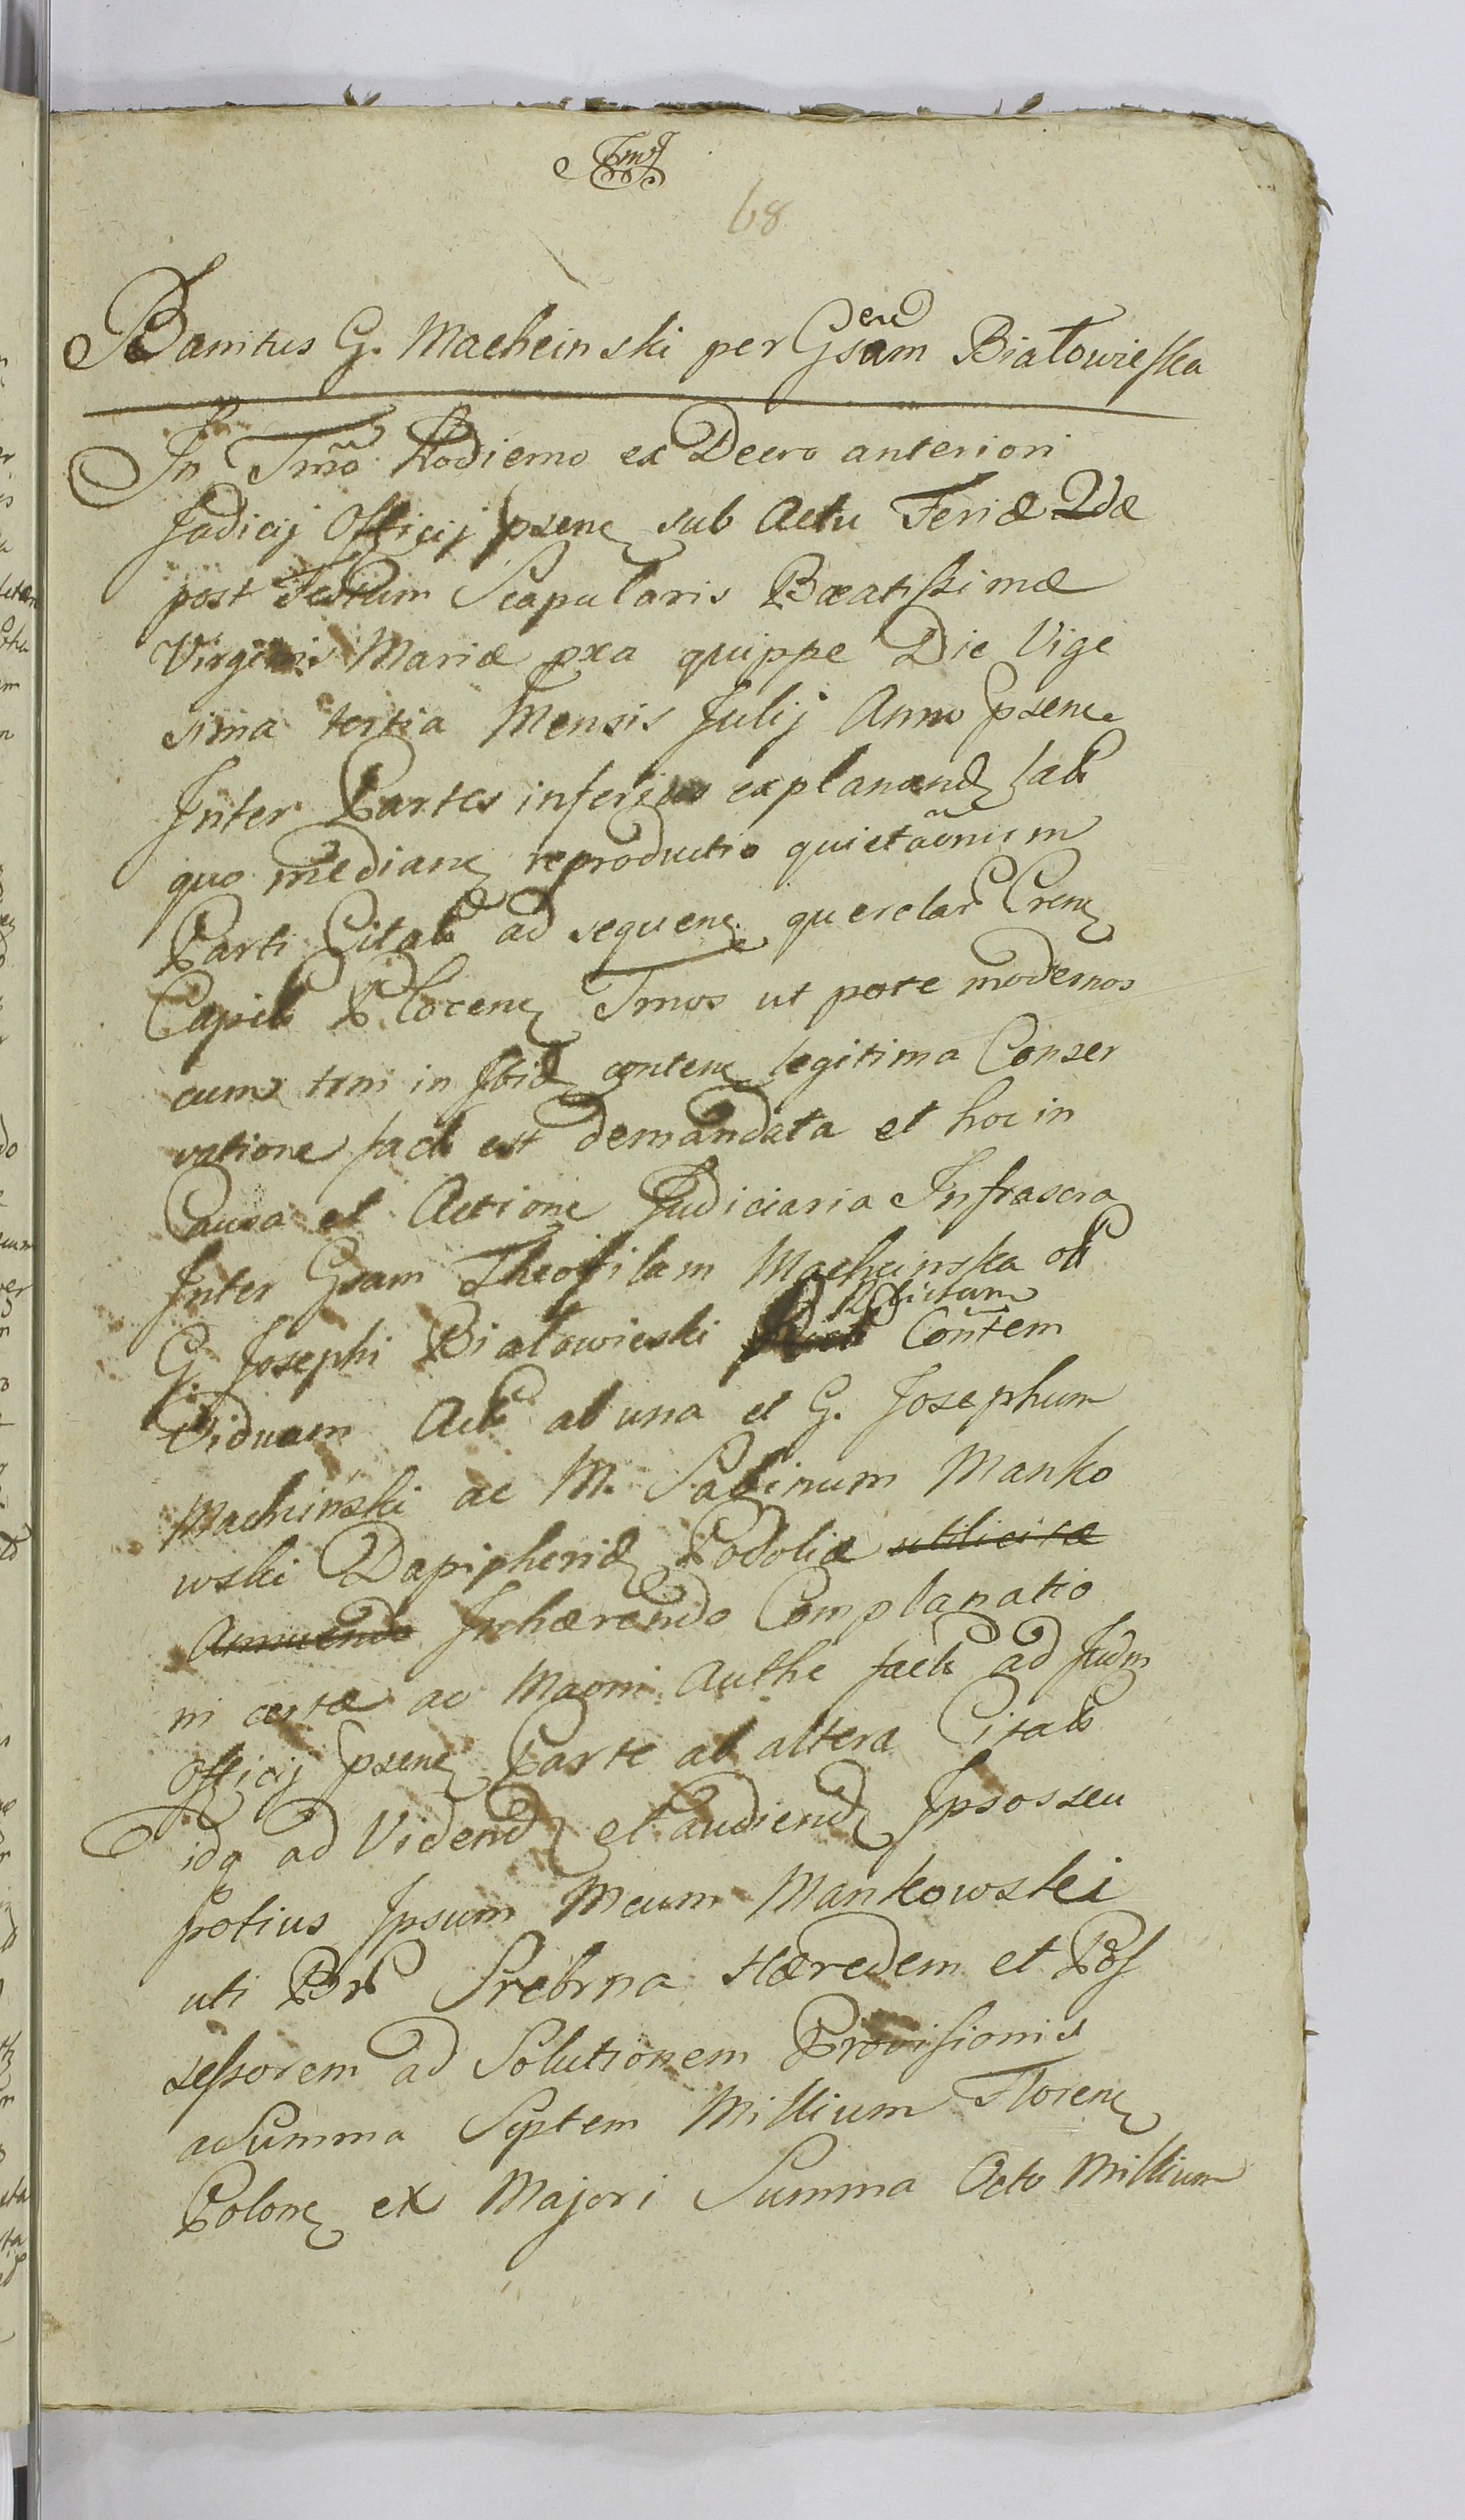 Tms
68
Banitus G. Macheinski per Gsam Białowieska
eu
In Tmõ Hodierno ex Decro anteriori
Judicij Officij psenc sub Actu Feriæ 2dæ
post Festum Scapularis Bæatissimæ
Virginis Mariæ pxa quippe Die Vige
sima tertia Mensis Julij Anno psenc
Inter Partes inferius explanand lat
quo medianc reproductio quietãonum
Parti Citat ad sequenc querelar Crenc
Capit Plocenc Tmos ut pote modernos
cum trni in Ibid contenc legitima Conser
vatione fact est demandata et hoc in
Causa et Actione Judiciaria Infrascra
Inter Gsam Theofilam Macheinska ol
G. Josephi Białowieski Relictam Coñtem
Viduam Act ab una et G. Josephum
Macheinski ac M. Sabinum Manko
wski Dapipherid Podoliæ utilicitæ
Annuendo Inhærendo Complanatio
ni certæ ac Magni Authe fact ad Judm
Officij psenc Parte ab altera Citat
idq ad Vidend et audiend Ipsos seu
potius Ipsum Mcum Mankowski
uti Br Srebrna Hæredem et Pos
sessorem ad Solutionem Provisionis
a Summa Septem Millium Florenc
Polonc ex Majori Summa Octo Millium